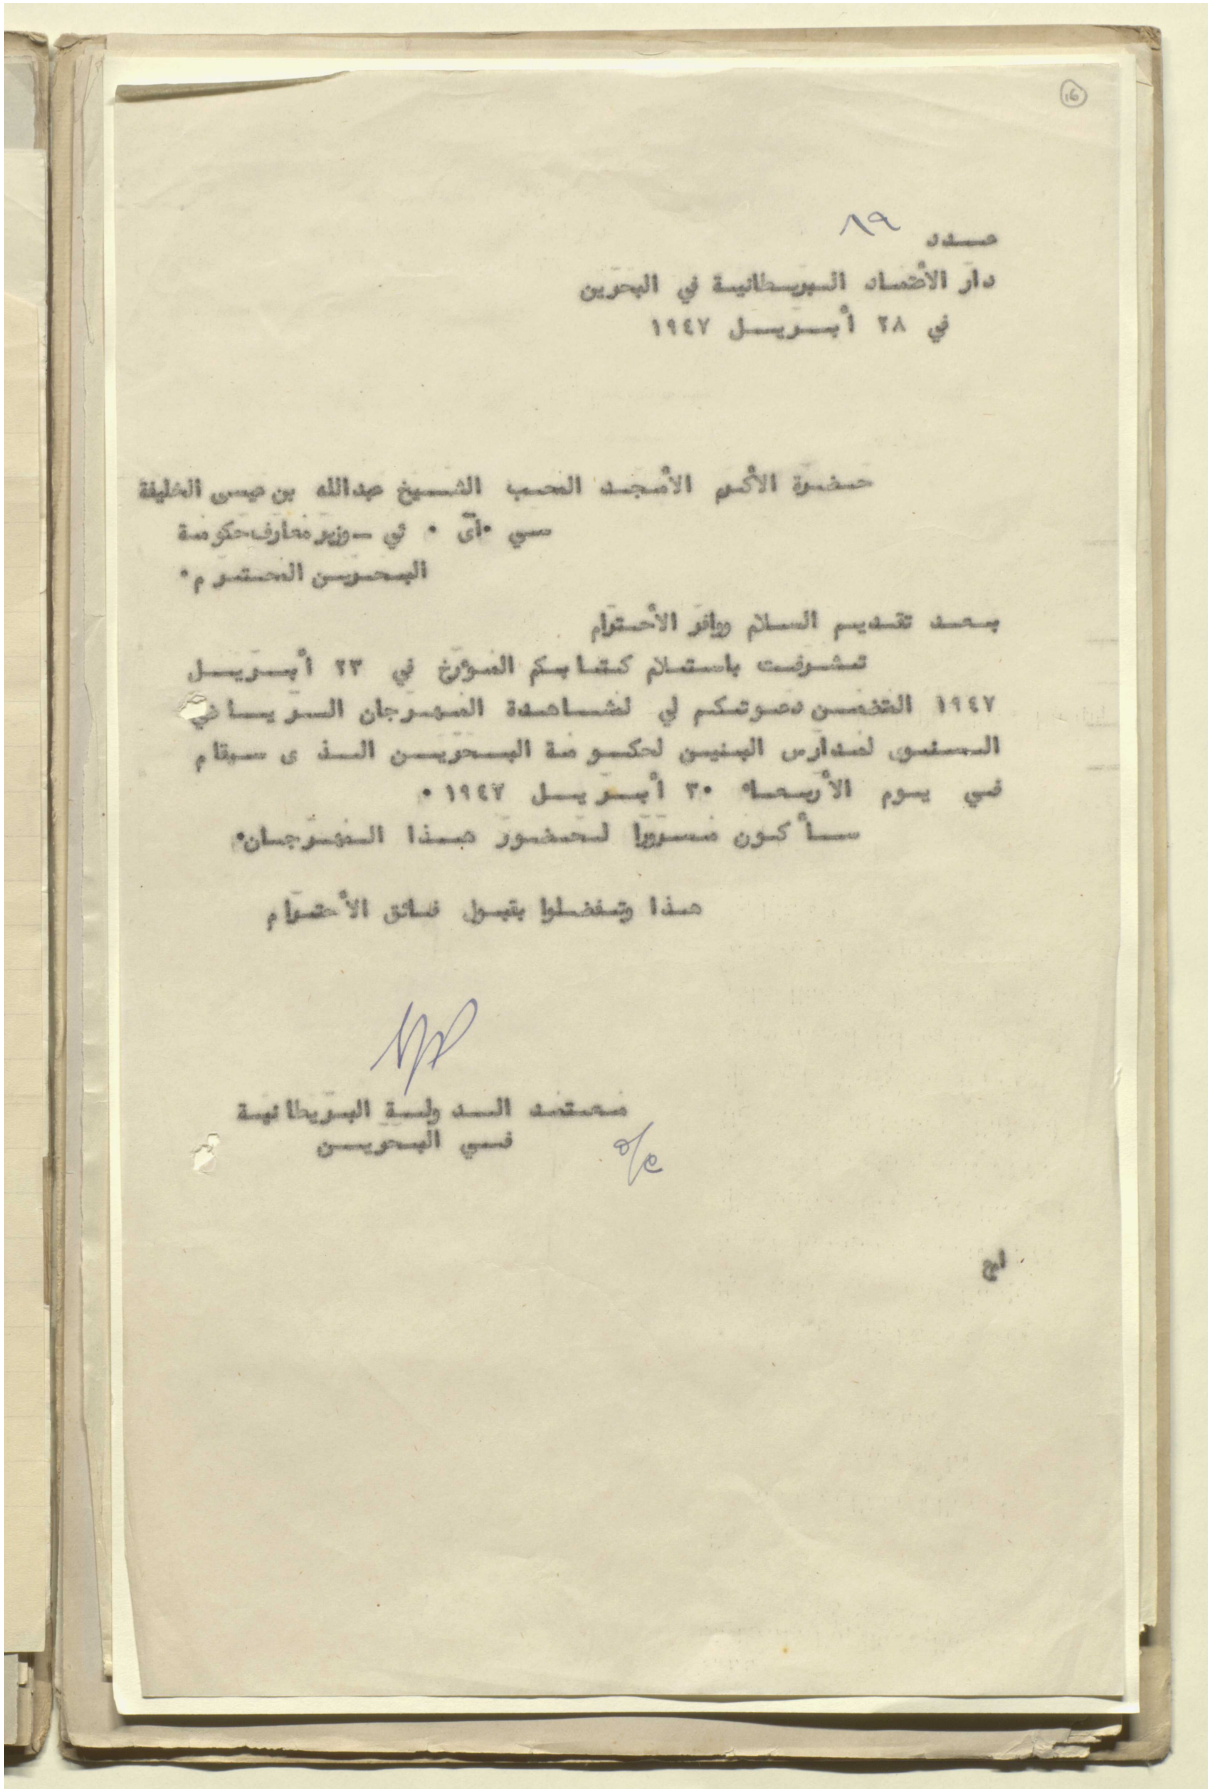 16
عدد ٨٩
دار الأعتماد البريطانية في البحرين
في ٢٨ أبريل ١٩٤٧
حضرة الأكرم الأمجد المحب الشيخ عبدالله بن عيسى الخليفة
سي ٠آى ٠ ئي - وزير معارف حكومة
البحرين المحترم٠
بعد تقديم السلام ووافر الأحترام
تشرفت باستلام كتابكم المؤرخ في ٢٣ أبريل
١٩٤٧ المتضمن دعوتكم لي لمشاهدة المهرجان الرياضي
السنوى لمدارس البنين لحكومة البحرين الذى سيقام
في يوم الأربعاء ٣٠ أبريل ١٩٤٧ ٠
سأكون مسرورا لحضور هذا المهرجان٠
هذا وتفضلوا بقبول فائق الأحترام
معتمد الدولة البريطانية
في البحرين
o/c